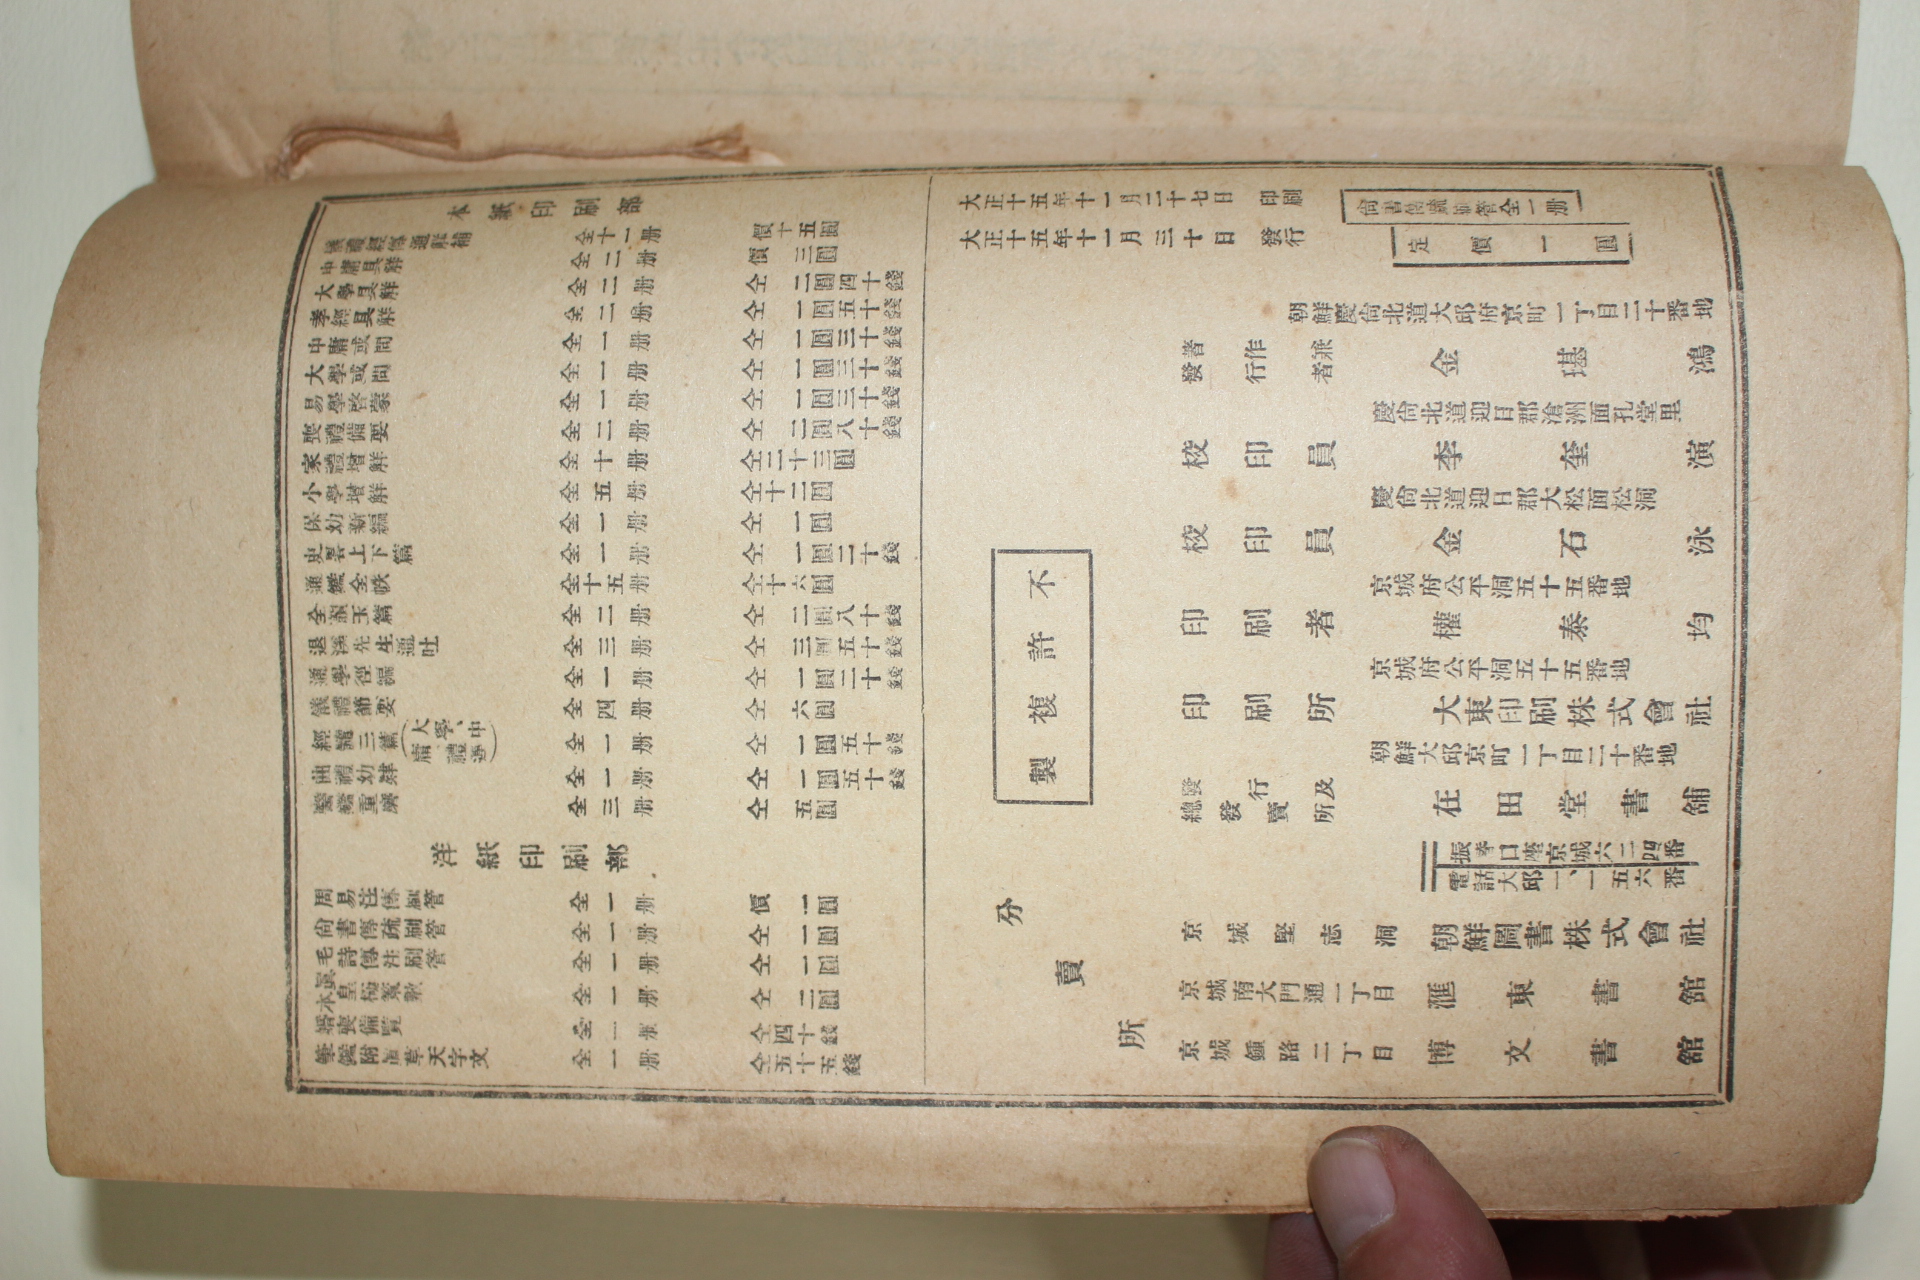 本紙印刷部
中庸具解 全二册 價三圓
大學具解 全二册 仝二圓四十錢
孝經具解 全二册 仝一圓五十錢
中庸或問 全一册 仝一圓三十錢
大學或問 全一册 仝一圓三十錢
易學啓蒙 全一册 仝一圓三十錢
喪禮備要 全二册 仝二圓八十錢
家禮增解 全十册 仝二十三圓
小學增解 全五册 仝十二圓
保幼新編 全一册 仝一圓
史畧上下篇 全一册 仝一圓二十錢
通鑑全帙 全十五册 仝十六圓
全韻玉篇 全二册 仝二圓八十錢
退溪先生通吐 全三册 仝三圓五十錢
通學徑編 全一册 仝一圓二十錢
儀禮節要 全四册 仝六圓
經髓三篇(大學、中庸、禮運) 全一册 仝一圓五十錢
曲禮幼肄 全一册 仝一圓五十錢
全三册 仝五圓
洋紙印刷部
周易注傳 管 全一册 價二圓
尙書傳疏 管 全一册 仝二圓
毛詩傳注 管 全一册 仝二圓
全一册 仝二圓
婚喪備覽 全一册 仝四十錢
筆鑑附眞草天字文 全一册 仝五十五錢
大正十五年十一月二十七日 印刷
大正十五年十一月三十日 發行
尙書傳疏 管全一册
定價一圓
不許複製
朝鮮慶尙北道大邱府京町一丁目二十番地
著作兼發行者 金堪鴻
慶尙北道迎日郡滄洲面孔堂里
校印員 李奎演
慶尙北道迎日郡大松面松洞
校印員 金石泳
京城府公平洞五十五番地
印刷者 權泰均
京城府公平洞五十五番地
印刷所 大東印刷株式會社
朝鮮大邱京町一丁目二十番地
發行及總發賣所 在田堂書舖
振替口座京城六二四番
電話大邱一、一五六番
分賣所
京城堅志洞 朝鮮圖書株式會社
京城南大門通一丁目 滙東書舘
京城鍾路二丁目 博文書舘